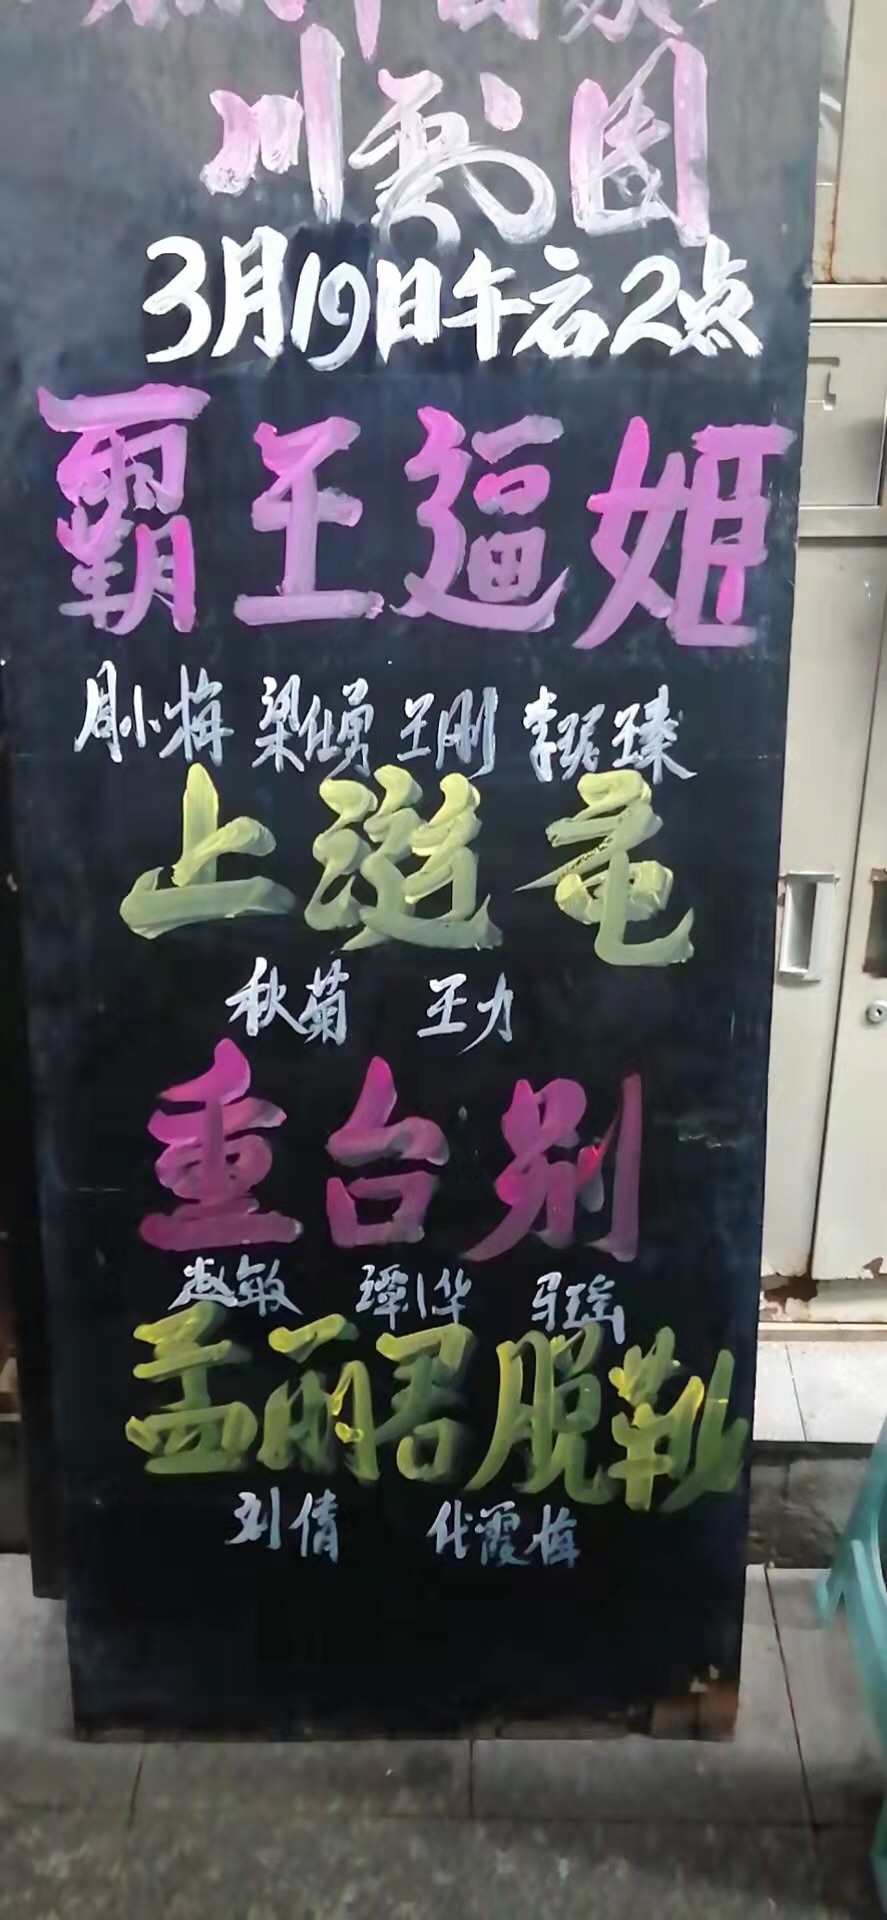 川剧团
3月19日午后2点
霸王逼姬
周小梅 梁仕勇 王刚
上游庵
秋菊 王力
重台别
赵敏 马瑶
孟丽君脱靴
刘倩 代霞梅